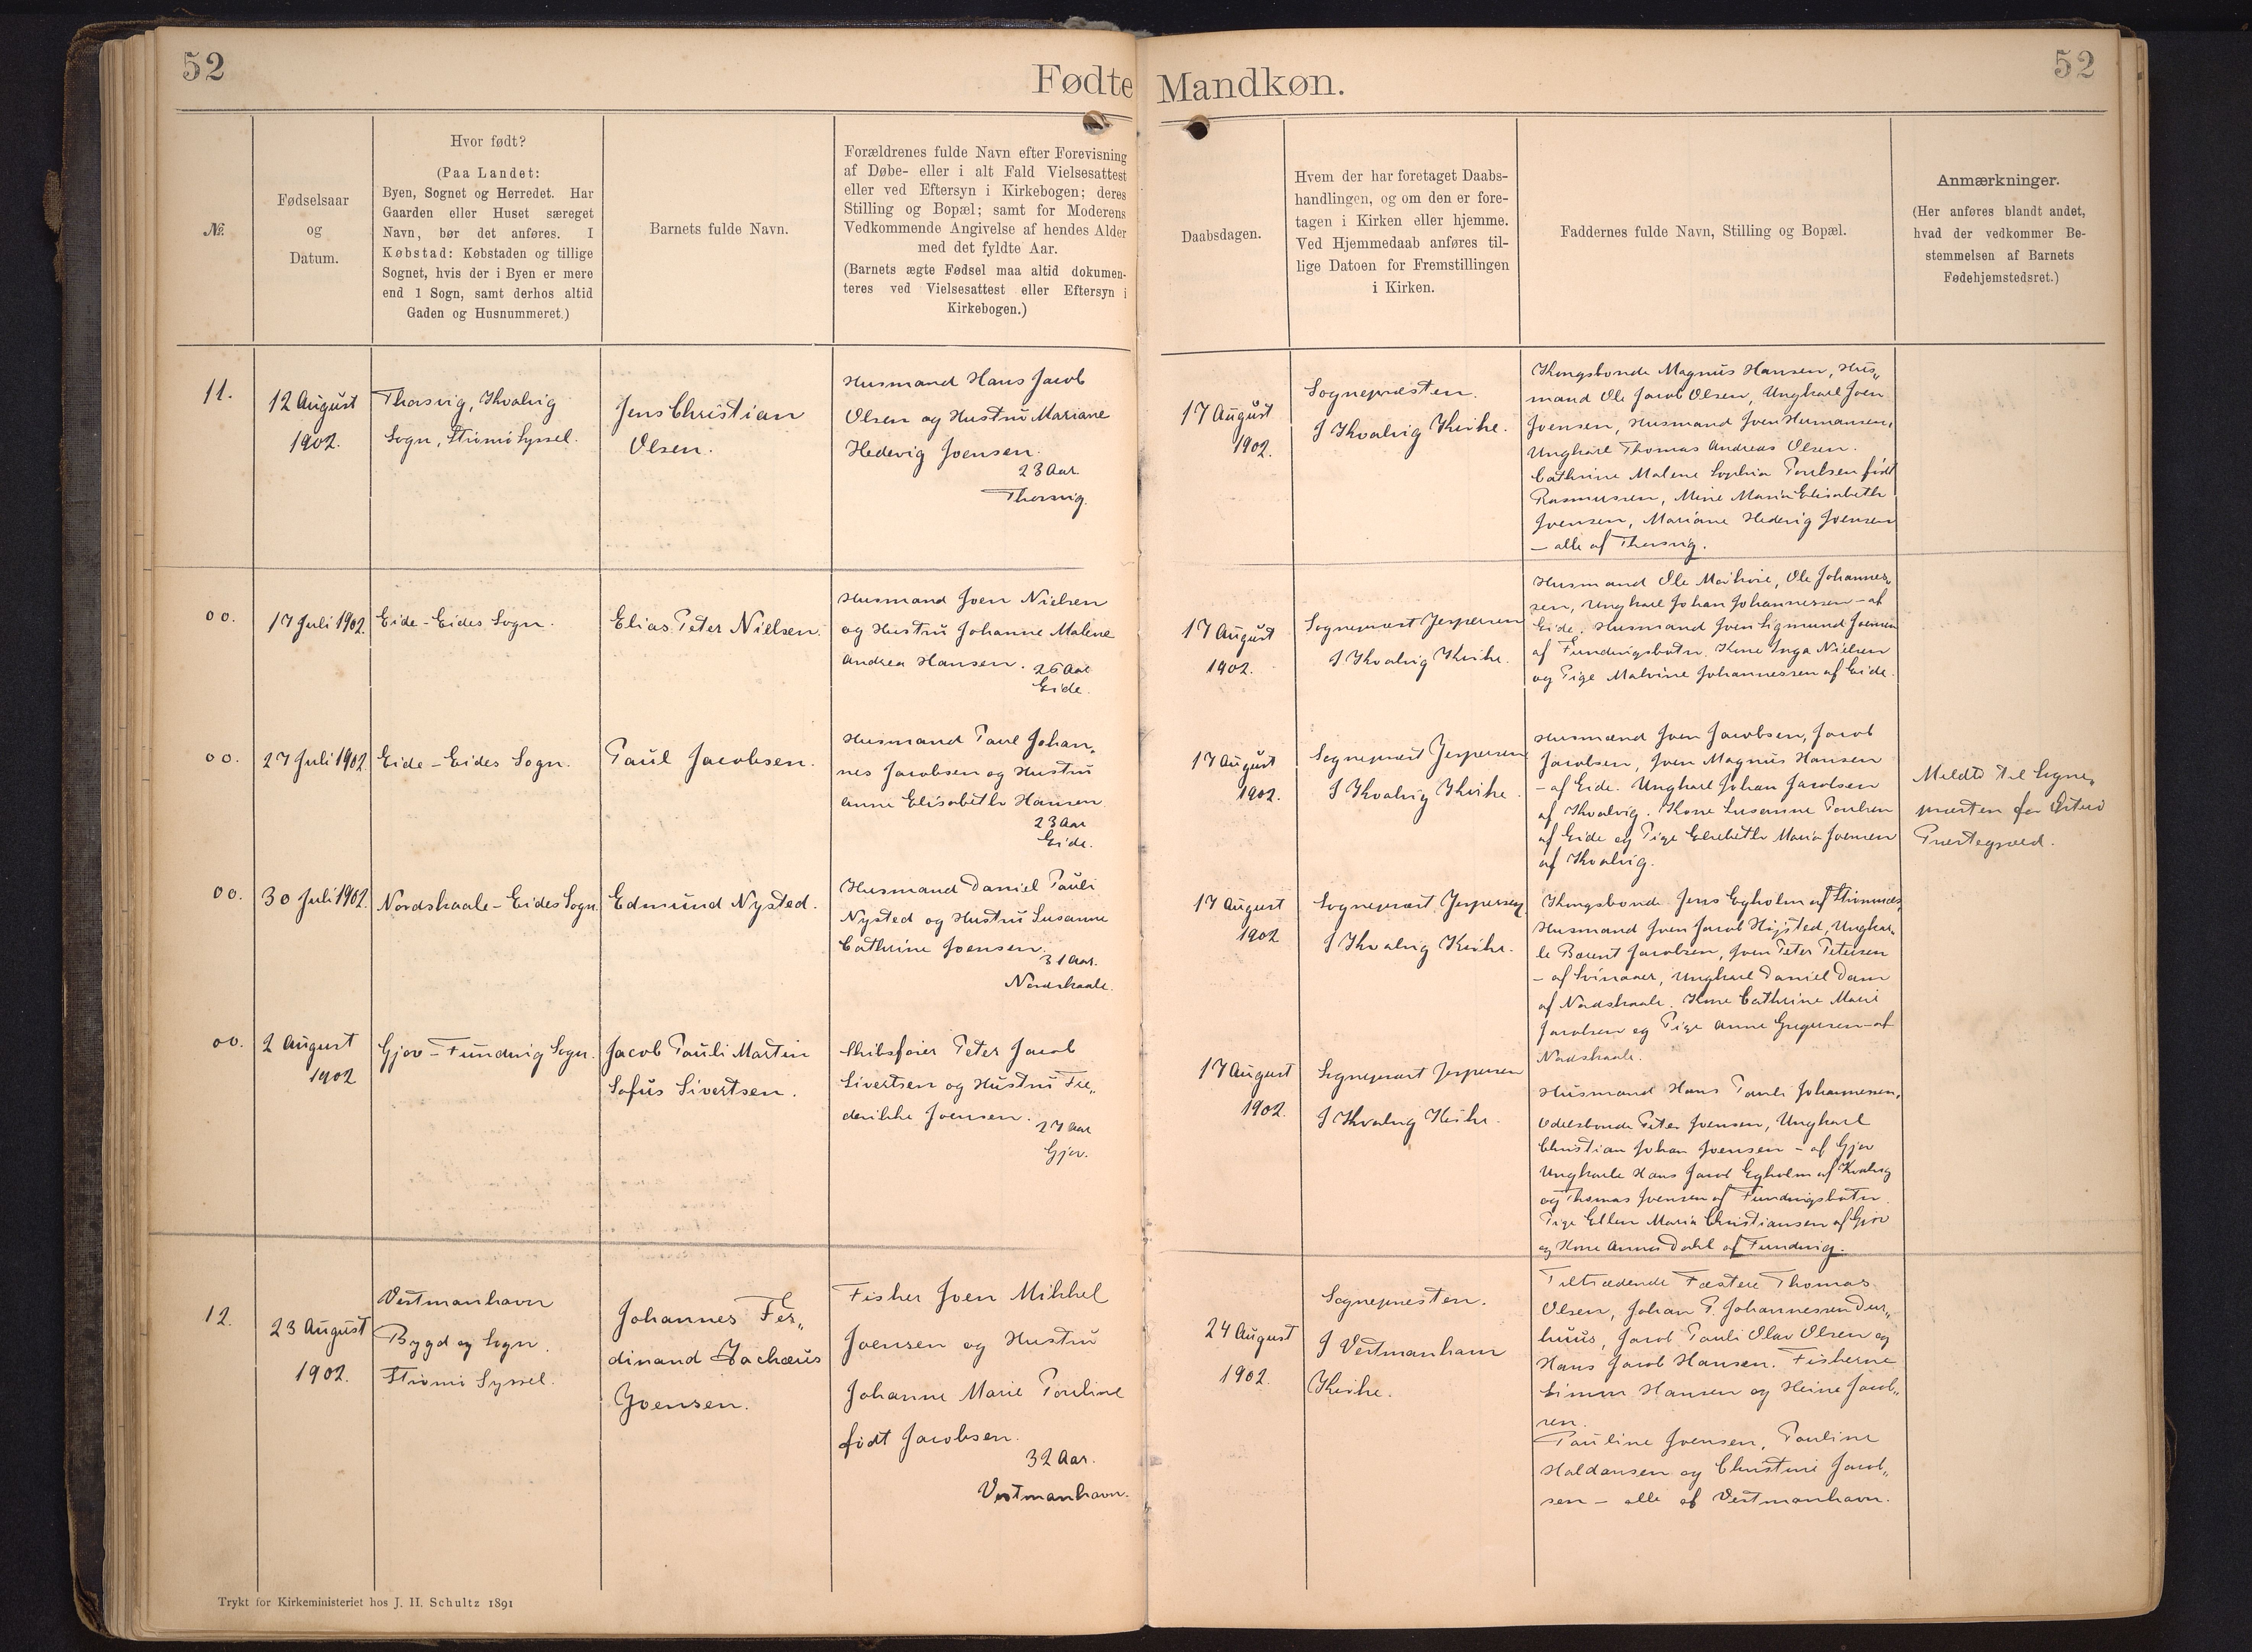 52
52
Fødte Mandkøn.
№
Fødselsaar
og
Datum.
Hvor født?
(Paa Landet:
Byen, Sognet og Herredet. Har
Gaarden eller Huset særeget
Navn, bør det anføres. I
Købstad: Købstaden og tillige
Sognet, hvis der i Byen er mere
end 1 Sogn, samt derhos altid
Gaden og Husnummeret.)
Barnets fulde Navn.
Forældrenes fulde Navn efter Forevisning
af Døbe- eller i alt Fald Vielsesattest
eller ved Eftersyn i Kirkebogen; deres
Stilling og Bopæl; samt for Moderens
Vedkommende Angivelse af hendes Alder
med det fyldte Aar.
(Barnets ægte Fødsel maa altid dokumen-
teres ved Vielsesattest eller Eftersyn i
Kirkebogen.)
Daabsdagen.
Hvem der har foretaget Daabs-
handlingen, og om den er fore-
tagen i Kirken eller hjemme.
Ved Hjemmedaab anføres til-
lige Datoen for Fremstillingen
i Kirken.
Faddernes fulde Navn, Stilling og Bopæl.
Anmærkninger.
(Her anføres blandt andet,
hvad der vedkommer Be-
stemmelsen af Barnets
Fødehjemstedsret.)
11.
12 August
1902.
Thorsvig, Kvalvig
Sogn, Strømø Syssel.
Jens Christian
Olsen.
Husmand Hans Jacob
Olsen og Hustru Mariane
Hedevig Joensen.
23 Aar.
Thorsvig.
17 August
1902.
Sognepræsten.
I Kvalvig Kirke.
Kongsbonde Magnus Hansen, Hus„
mand Ole Jacob Olsen, Ungkarl Joen
Joensen, Husmand Joen Hermansen,
Ungkarl Thomas Andreas Olsen.
Cathrine Malene Sophia Poulsen født
Rasmussen, Mine Maria Elisabeth
Joensen, Mariane Hedevig Joensen
– alle af Thorsvig.
00.
17 Juli 1902.
Eide – Eides Sogn.
Elias Peter Nielsen.
Husmand Joen Nielsen
og Hustru Johanne Malene
Andrea Hansen.
26 Aar
Eide.
17 August
1902.
Sognepræst Jespersen
I Kvalvig Kirke.
Husmand Ole Mørkøre, Ole Johannes„
sen, Ungkarl Johan Johannessen – af
Eide. Husmand Joen Sigmund Joensen
af Fundingsbotn. Kone Inga Nielsen
og Pige Malvine Johannessen af Eide.
00.
27 Juli 1902.
Eide – Eides Sogn.
Paul Jacobsen.
Husmand Poul Johan„
nes Jacobsen og Hustru
Anne Elisabeth Hansen
23 Aar
Eide.
17 August
1902.
Sognepræst Jespersen
I Kvalvig Kirke.
Husmand Joen Jacobsen, Jacob
Jacobsen, Joen Magnus Hansen
– af Eide. Ungkarl Johan Jacobsen
af Kvalvig. Kone Susanne Poulsen
af Eide og Pige Elsebeth Maria Joensen
af Kvalvig.
Meldt til Sogne„
præsten for Østerø
Præstegjæld.
00.
30 Juli 1902.
Nordskaale – Eides Sogn
Edmund Nysted.
Husmand Daniel Pauli
Nysted og Hustru Susanne
Cathrine Joensen.
31 Aar.
Nordskaale.
17 August
1902
Sognepræst Jespersen
I Kvalvig Kirke.
Kongsbonde Jens Egholm af Strømnæs,
Husmand Joen Jacob Højsted, Ungkar„
le Bærent Jacobsen, Joen Peter Petersen
– af Svinaaer, Ungkarl Daniel Dam
af Nordskaale. Kone Cathrine Marie
Jacobsen og Pige Anne Gregersen – af
Nordskaale.
00.
2 August
1902
Gjov – Funding Sogn.
Jacob Pauli Martin
Sofus Sivertsen.
Skibsfører Peter Jacob
Sivertsen og Hustru Fre„
derikke Joensen.
27 Aar
Gjov.
17 August
1902.
Sognepræst Jespersen
I Kvalvig Kirke.
Husmand Hans Pauli Johannessen,
Odelsbonde Peter Joensen, Ungkarl
Christian Johan Joensen – af Gjov
Ungkarle Hans Jacob Egholm af Kvalvig
og Thomas Joensen af Fundingsbotn.
Pige Ellen Maria Christiansen af Gjov
og Kone Anna Dahl af Funding.
12.
23 August
1902.
Vestmanhavn
Bygd og Sogn.
Strømø Syssel.
Johannes Fer„
dinand Zachæus
Joensen.
Fisker Joen Mikkel
Joensen og Hustru
Johanne Marie Pouline
født Jacobsen.
32 Aar.
Vestmanhavn.
24 August
1902.
Sognepræsten.
I Vestmanhavn
Kirke.
Tiltrædende Fæstere Thomas
Olsen, Johan P. Johannessen Dur„
huus, Jacob Pauli Olav Olsen og
Hans Jacob Hansen. Fiskerne
Simon Hansen og Heine Jacob„
sen.
Pauline Joensen, Pauline
Haldansen og Christine Jacob„
sen – alle af Vestmanhavn.
Trykt for Kirkeministeriet hos J. H. Schultz 1891